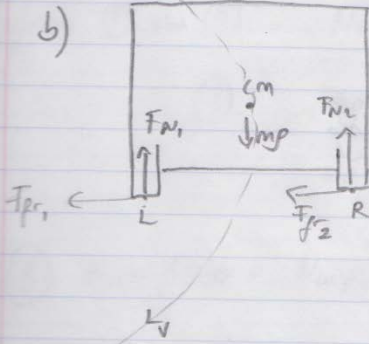 b)
cm
F_N₁
mg
F_N₂
F_fr₁
L
F_fr₂
R
L_v